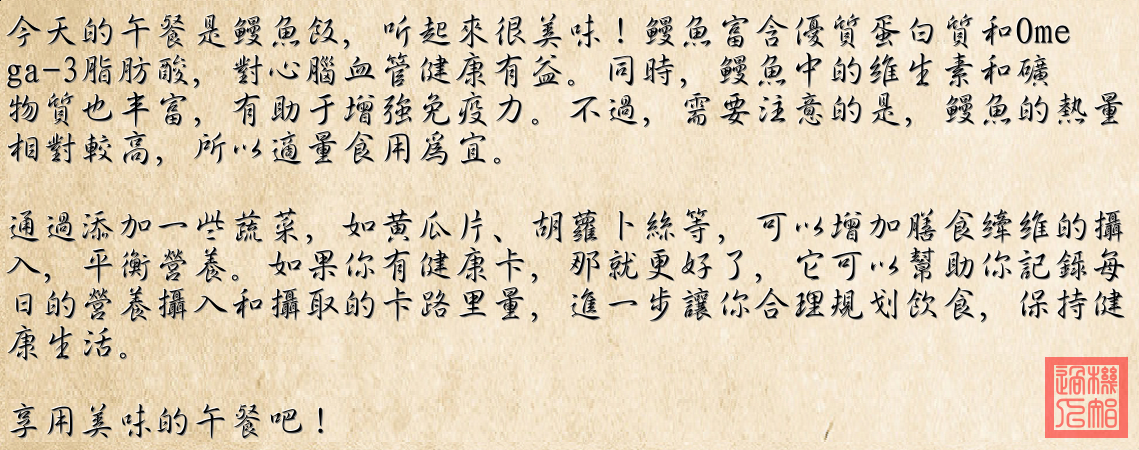 今天的午餐是鰻魚飯，听起來很美味！鰻魚富含優質蛋白質和Ome
ga-3脂肪酸，對心腦血管健康有益。同時，鰻魚中的维生素和礦
物質也丰富，有助于增強免疫力。不過，需要注意的是，鰻魚的熱量
相對較高，所以適量食用爲宜。
通過添加一些蔬菜，如黄瓜片、胡蘿卜絲等，可以增加膳食縴维的攝
入，平衡營養。如果你有健康卡，那就更好了，它可以幫助你記錄每
日的營養攝入和攝取的卡路里量，進一步讓你合理規划飲食，保持健
康生活。
享用美味的午餐吧！